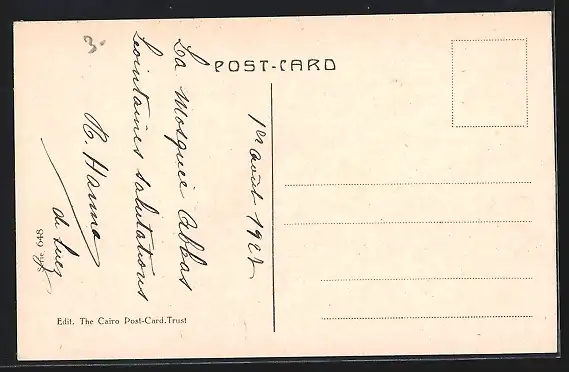 POST-CARD
1er août 1927
La Mosquée Abbas
Lointaines salutations
R. Hanne
de Suez
3.
Ser. 648
Edit. The Cairo Post-Card.Trust